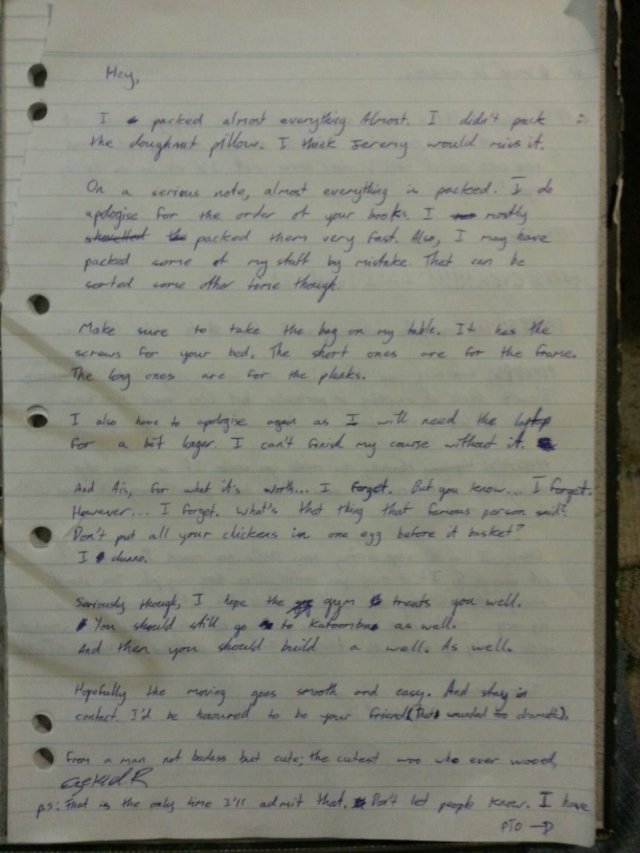 Hey,
I packed almost everything. Almost. I didn't pack
the doughnut pillow. I think Jeremy would miss it.
On a serious note, almost everything is packed. I do
apologise for the order of your books. I mostly
shovelled the packed them very fast. Also, I may have
packed some of my stuff by mistake. That can be
sorted some other time though.
Make sure to take the bag on my table. It has the
screws for your bed. The short ones are for the frame.
The long ones are for the planks.
I also have to apologise again as I will need the laptop
for a bit longer. I can't finish my course without it.
And Ais, for what it's worth... I forget. But you know... I forget.
However... I forget. What's that thing that famous person said?
Don't put all your chickens in one egg before it basket?
I dunno.
Seriously though, I hope the gym treats you well.
You should still go to Katoomba as well.
And then you should build a well. As well.
Hopefully the moving goes smooth and easy. And stay in
contact. I'd be honoured to be your friend (That sounded too dramatic).
From a man not badass but cute; the cutest was who ever wooed,
ps: That is the only time I'll admit that. Don't let people know. I have
PTO →